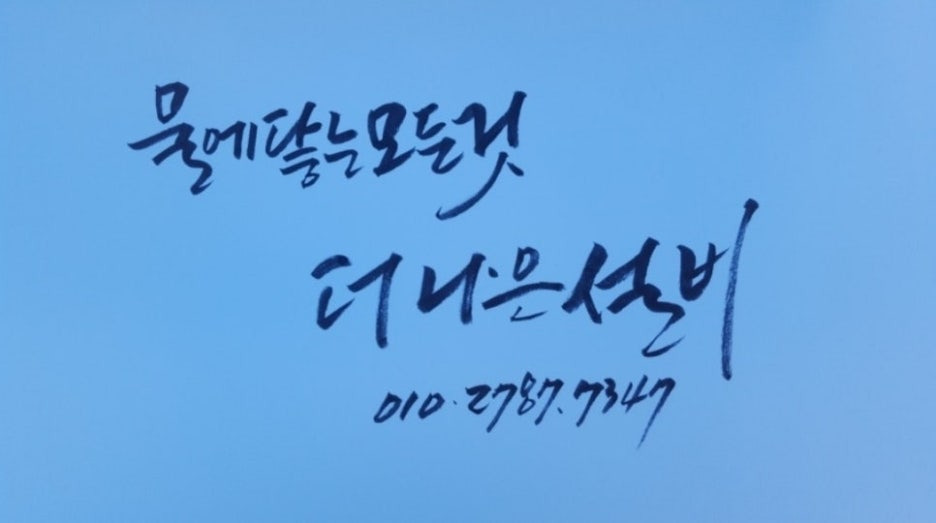 물에닿는모든것
더 나은설비
010.2787.7347